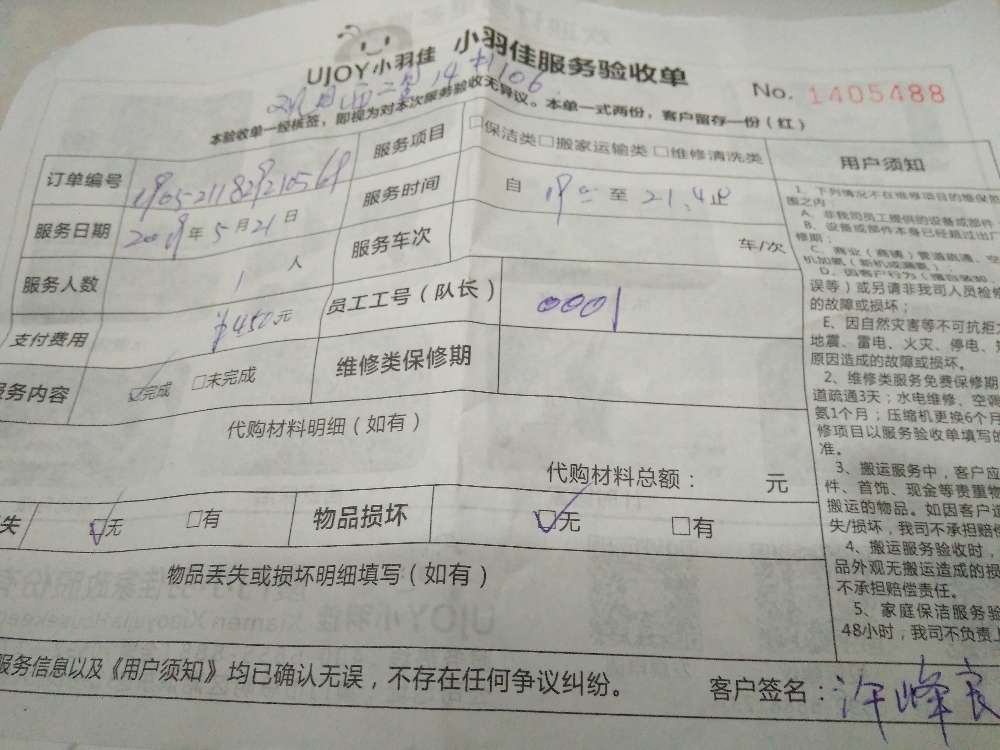 UJOY小羽佳 小羽佳服务验收单
No. 1405488
14 1106
本验收单一经核签，即视为对本次服务验收无异议。本单一式两份，客户留存一份（红）
订单编号
服务项目 □保洁类□搬家运输类□维修清洗类
服务日期 2019年5月21日
服务时间 自 至 21.4止
服务人数 1人
服务车次 车/次
支付费用 ¥450元
员工工号（队长） 0001
服务内容 ☑完成 □未完成
维修类保修期
代购材料明细（如有）
代购材料总额： 元
失 ☑无 □有 物品损坏 ☑无 □有
物品丢失或损坏明细填写（如有）
服务信息以及《用户须知》均已确认无误，不存在任何争议纠纷。 客户签名：
用户须知
1、下列情况不在维修项目的维保范
围之内：
A、非我司员工提供的设备或部件
B、设备或部件本身已经超过出厂
修期；
误等）或另请非我司人员检修
的故障或损坏；
E、因自然灾害等不可抗拒
地震、雷电、火灾、停电、
原因造成的故障或损坏。
2、维修类服务免费保修期
道疏通3天；水电维修、空调
氨1个月；压缩机更换6个月
修项目以服务验收单填写的
准。
3、搬运服务中，客户应
件、首饰、现金等贵重物
搬运的物品。如因客户
失/损坏，我司不承担赔偿
4、搬运服务验收时，
品外观无搬运造成的损
不承担赔偿责任。
5、家庭保洁服务验
48小时，我司不负责